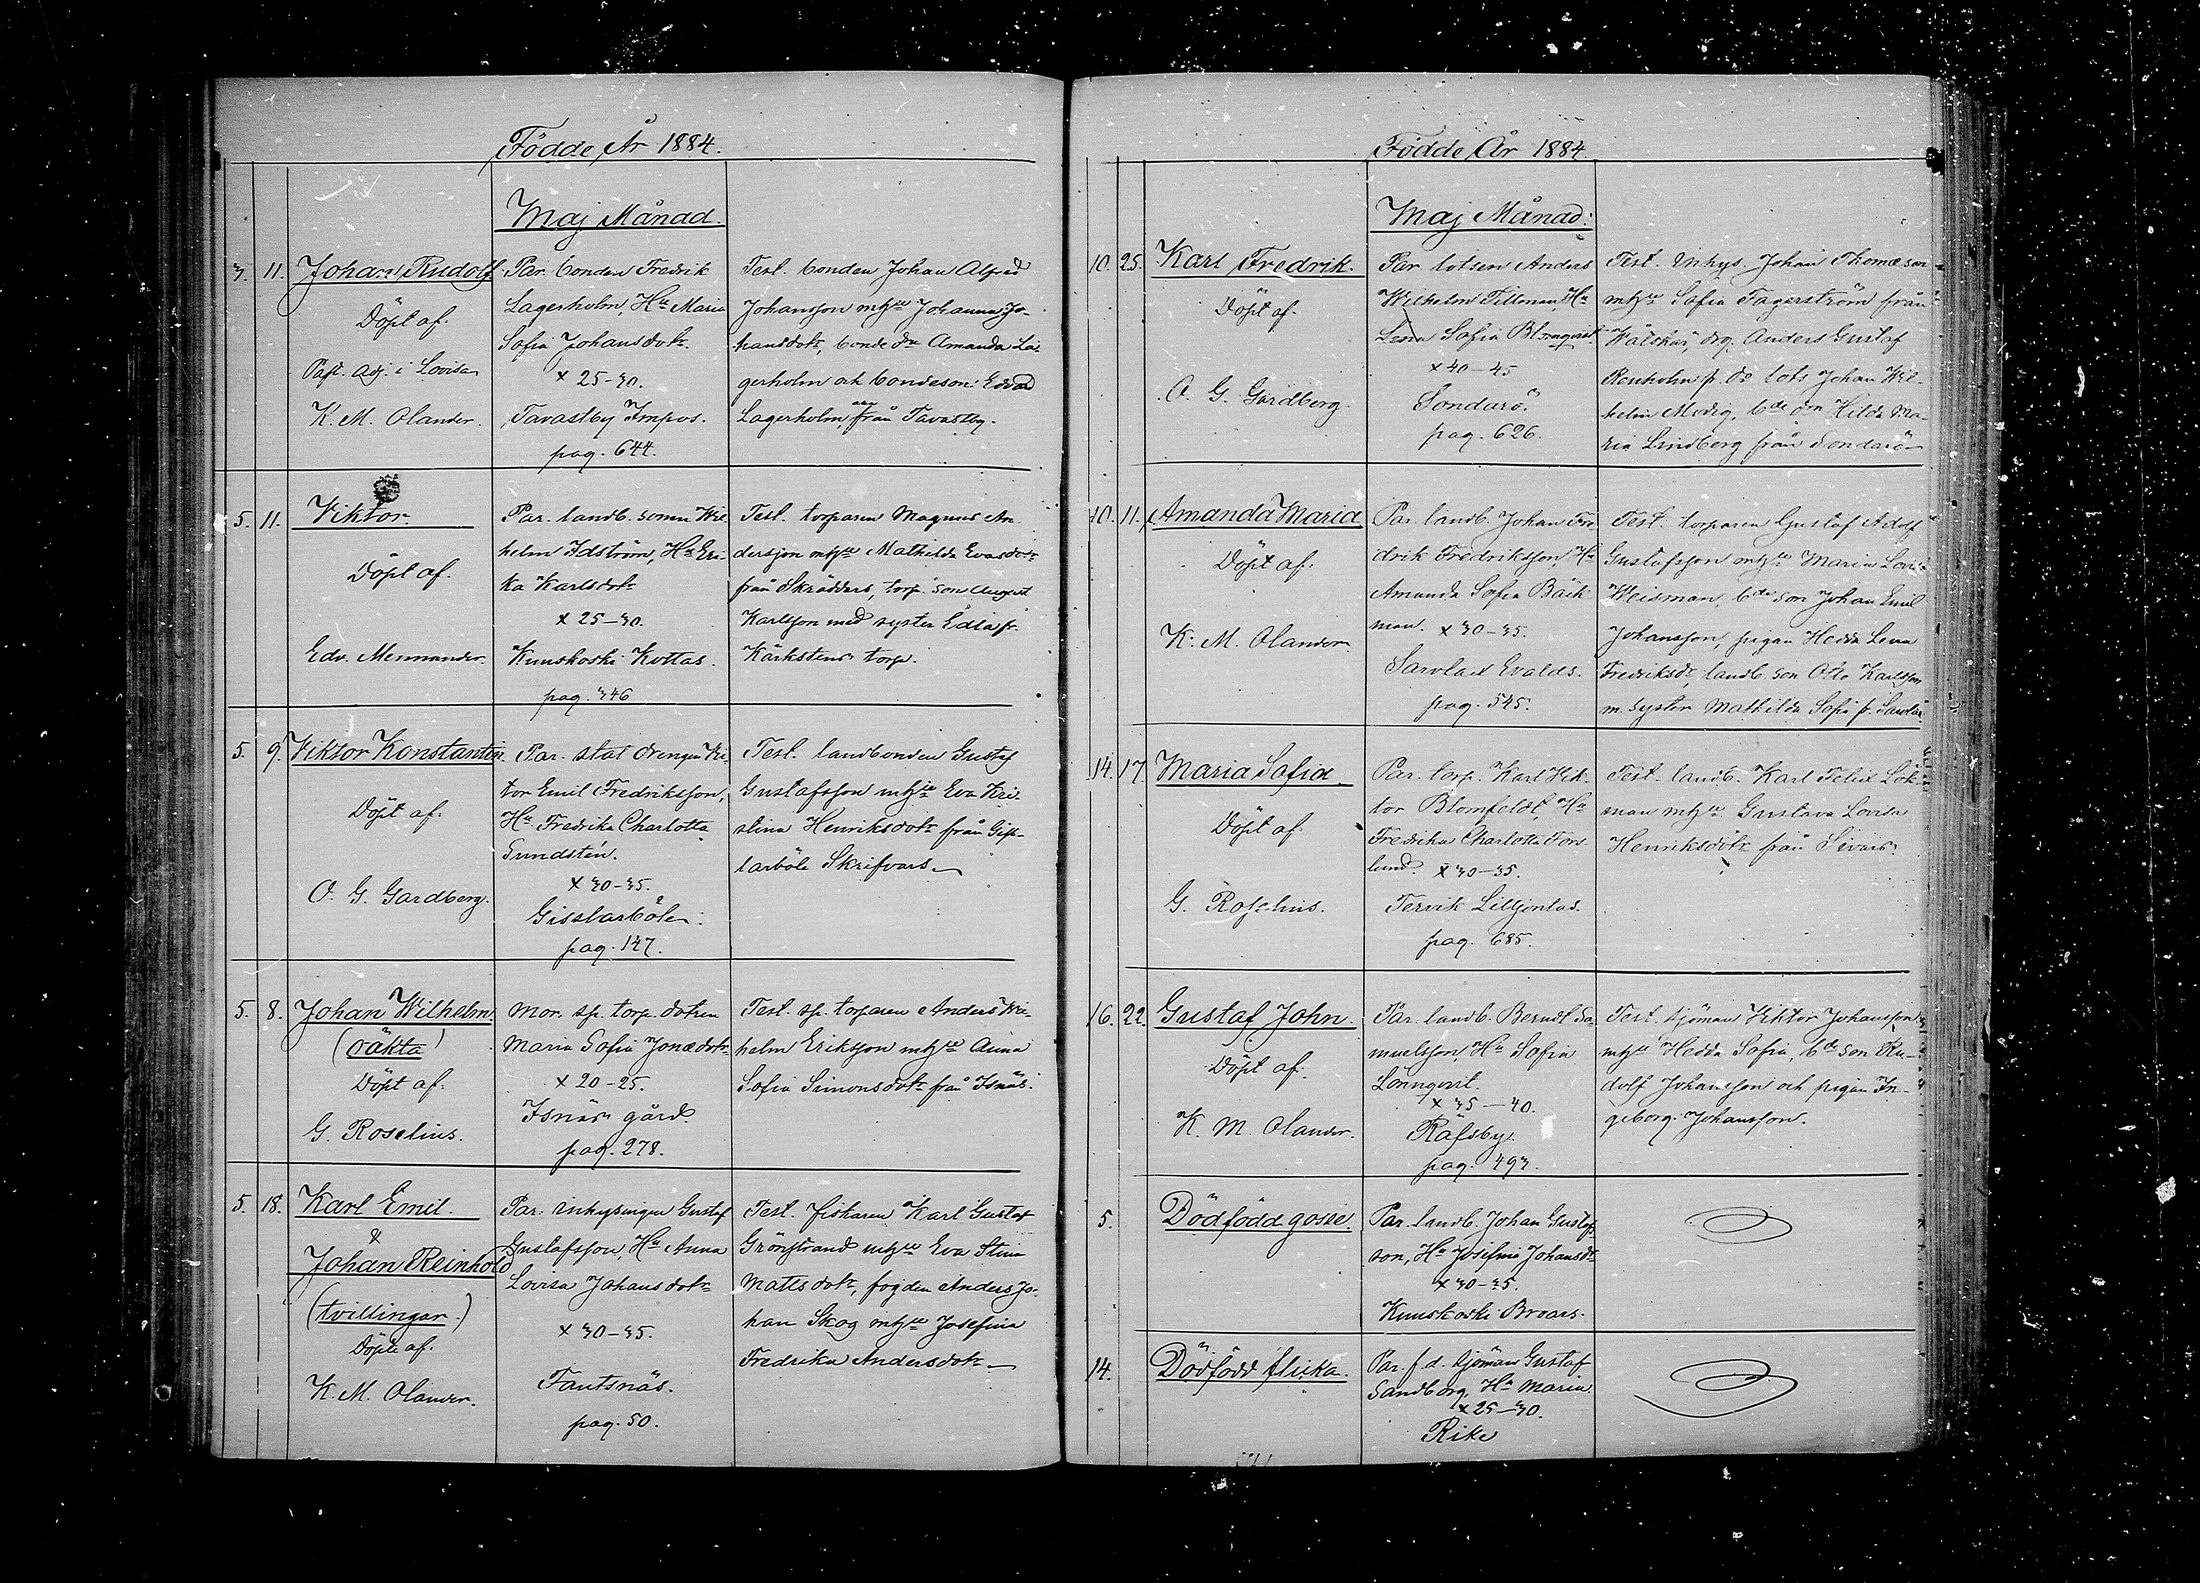 Födde År 1884.
Maj Månad.
3. 11. Johan Rudolf
Döpt af.
Past. adj. i Lovisa
K. M. Olander.
Par. bonden Fredrik
Lagerholm, Hu Maria
Sofia Johansdotr
x 25-30.
Tavastby Impos.
pag. 644.
Test. bonden Johan Alfred
Johansson mhje Johanna Jo-
hansdotr, bonde dn Amanda La-
gerholm och bondeson Edvard
Lagerholm, från Tavastby.
5. 11. Viktor.
Döpt af.
Edv. Mennander.
Par. landb. sonen Wil-
helm Idström, Hu Eri-
ka Karlsdotr
x 25-30.
Kuuskoski Kottas.
pag. 346
Test. torparen Magnus An-
dersson mhje Mathilda Evasdotr
från Skrädders, torp. son August
Karlsson med syster Edla fr.
Kärkstens torp.
5. 9. Viktor Konstantin.
Döpt af.
O. G. Gardberg.
Par. stat drengen Vik-
tor Emil Fredriksson,
Hu Fredrika Charlotta
Sundstén.
x 30-35.
Gisslarböle.
pag. 147.
Test. landbonden Gustaf
Gustafsson mhje Eva Kri-
stina Henriksdotr från Gis-
larböle Skrifvars
5. 8. Johan Wilhelm
(oäkta)
Döpt af.
G. Roselius.
Mor. sp. torp. dotren
Maria Sofia Jonædotr
x 20-25.
Isnäs gård
pag. 278.
Test. sp. torparen Anders Wil-
helm Eriksson mhje Anna
Sofia Simonsdotr från Isnäs.
5. 18. Karl Emil.
&
Johan Reinhold
(tvillingar.)
Döpte af.
K. M. Olander.
Par. inhysingen Gustaf
Gustafsson, Hu Anna
Lovisa Johansdotr
x 30-35.
Fantsnäs.
pag. 50.
Test. fiskaren Karl Gustaf
Grönstrand mhje Eva Stina
Mattsdotr, fogden Anders Jo-
han Skog mhje Josefina
Fredrika Andersdotr
Födde År 1884.
Maj Månad:
10. 25. Karl Fredrik.
Döpt af.
O. G. Gardberg.
Par lotsen Anders
Wilhelm Tillman, Hu
Lena Sofia Blomqvist.
x 40-45
Sondarö.
pag. 626.
Test. Inhys. Johan Thomæson
mhje Sofia Fagerström från
Wålskär, drg. Anders Gustaf
Renholm fr. do lots Johan Wil-
helm Modig, bde dn Hilda Ma-
ria Lindberg från Sondarö
10. 11. Amanda Maria
Döpt af.
K. M. Olander.
Par. landb. Johan Fre-
drik Fredriksson, Hu
Amanda Sofia Bäck-
man. x 30-35.
Sarvlax Evalds.
pag. 545.
Test. torparen Gustaf Adolf
Gustafsson mhje Maria Lovis
Weisman, bde son Johan Emil
Johansson, pigan Hedda Lena
Fredriksdr, landb. son Otto Karlsson
m. syster Mathilda Sofia fr. Sarvlax
14. 17. Maria Sofia
Döpt af.
G. Roselius.
Par. torp. Karl Vik-
tor Blomfeldt, Hu
Fredrika Charlotta Fors-
lund. x 30-35.
Tervik Liljendas.
pag. 685.
Test. landb. Karl Felix Sök-
man mhje Gustava Lovisa
Henriksdotr från Sivars.
16. 22. Gustaf John.
Döpt af.
K. M. Olander.
Par. landb. Berndt Sa-
muelsson Hu Sofia
Lönnqvist.
x 35-40.
Räfsby.
pag. 493.
Test. sjöman Viktor Johansson
mhje Hedda Sofia, bde son Ru-
dolf Johansson och pigan In-
geborg Johansson.
5. Dödfödd gosse.
Par. landb. Johan Gustaf-
son, Hu Josefina Johansdr
x 30-35.
Kuuskoski Broars.
14. Dödfödd flicka.
Par. f. d. sjöman Gustaf
Sandberg, Hu Maria
x 25-30.
Rike